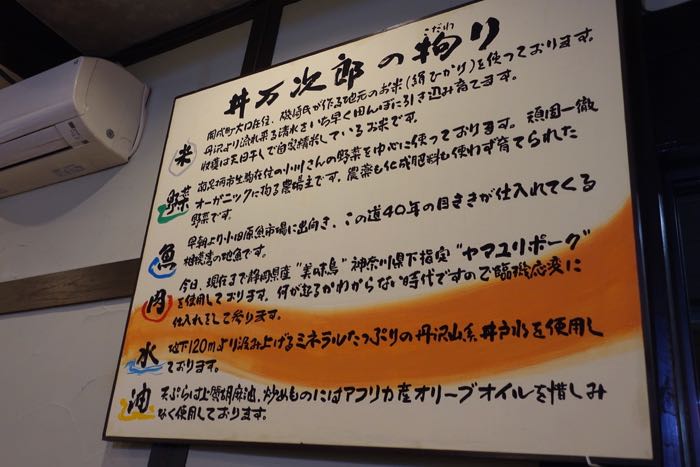 こだわ
井万次郎の拘り
米 開成町大口在住、磯崎氏が作る地元のお米(絹ひかり)を使っております。
丹沢より流れ来る清水をいち早く田んぼに引き込み育てます。
収穫は天日干しで自家精米しているお米です。
野菜 南足柄市生駒在住の小川さんの野菜をゆびに使っております。頑固一徹
オーガニックに拘る農場主です。農薬も化成肥料も使わず育てられた
野菜です。
魚 早朝より小田原魚市場に出向き、この道40年の目ききが仕入れてくる
相模湾の地魚です。
肉 今日、現在まで静岡県産"美味鳥"神奈川県下指定"ヤマユリポーク"
を使用しております。何が起るかわからない時代ですので臨機応変に
仕入れをして参ります。
水 地下120mより汲み上げるミネラルたっぷりの丹沢山系井戸水を使用し
ております。
油 天ぷらは上質胡麻油、炒めものにはアフリカ産オリーブオイルを惜しみ
なく使用しております。